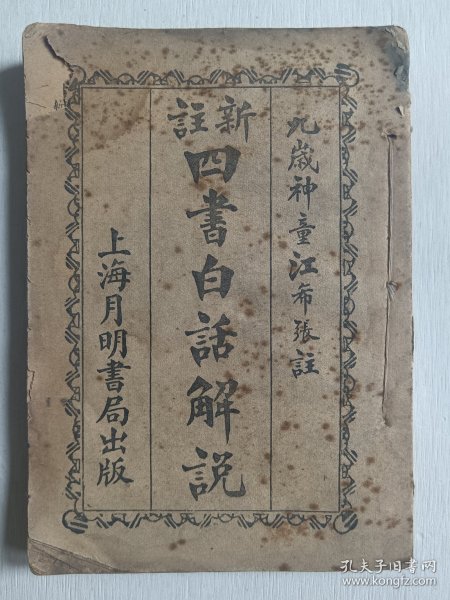 九歲神童江希張註
新註
四書白話解說
上海月明書局出版
孔夫子旧书网
www.kongfz.com